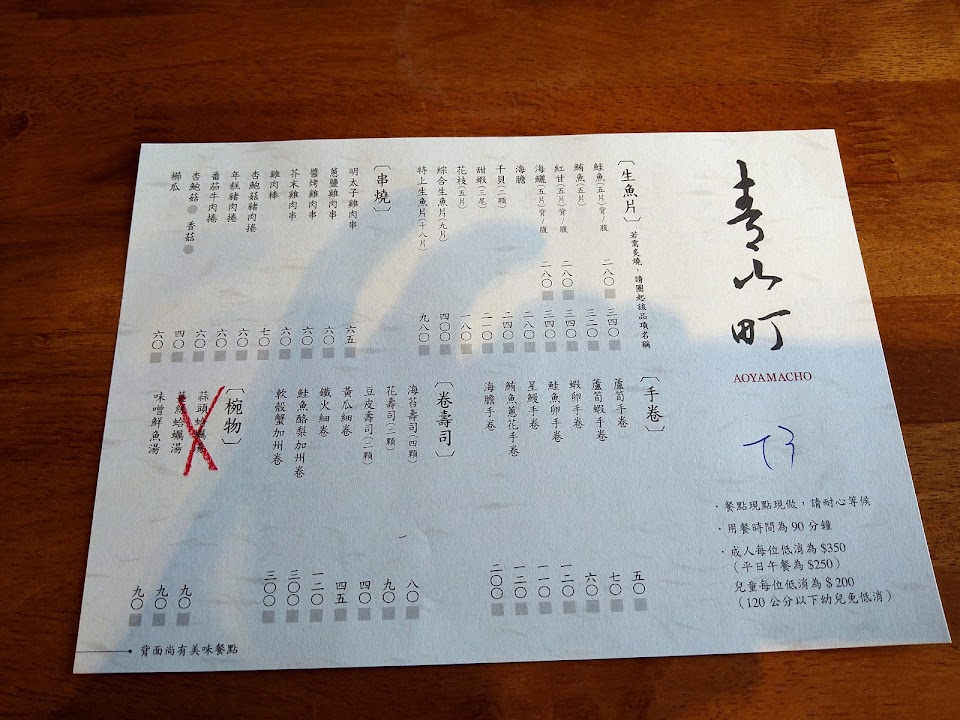 青山町
AOYAMACHO
T3
・餐點現點現做,請耐心等候
・用餐時間為 90 分鐘
・成人每位低消為 $350
(平日午餐為 $250)
兒童每位低消為 $ 200
(120 公分以下幼兒免低消)
〔生魚片〕 若需炙燒,請圈起該品項名稱
鮭魚(五片)背/腹 二八〇 三四〇
鮪魚(五片) 三二〇
紅甘(五片)背/腹 二八〇 三四〇
海鱺(五片)背/腹 二八〇 三四〇
海膽 二八〇
干貝(三顆) 二四〇
甜蝦(三尾) 二一〇
花枝(五片) 一八〇
綜合生魚片(九片) 四〇〇
特上生魚片(十八片) 九八〇
〔串燒〕
明太子雞肉串 六五
蔥鹽雞肉串 六〇
醬烤雞肉串 六〇
芥末雞肉串 六〇
雞肉棒 七〇
杏鮑菇豬肉捲 六〇
年糕豬肉捲 六〇
番茄牛肉捲 六〇
杏鮑菇 香菇 四〇
櫛瓜 六〇
〔手卷〕
蘆筍手卷 五〇
蘆筍蝦手卷 七〇
蝦卵手卷 六〇
鮭魚卵手卷 一二〇
星鰻手卷 一一〇
鮪魚蔥花手卷 一二〇
海膽手卷 二〇〇
〔卷壽司〕
海苔壽司(四顆) 八〇
花壽司(二顆) 九〇
豆皮壽司(二顆) 四〇
黃瓜細卷 四五
鐵火細卷 一二〇
鮭魚酪梨加州卷 三〇〇
軟殼蟹加州卷 三〇〇
〔椀物〕
蒜頭蛤蠣湯 九〇
蛤蠣湯 九〇
味噌鮮魚湯 九〇
背面尚有美味餐點